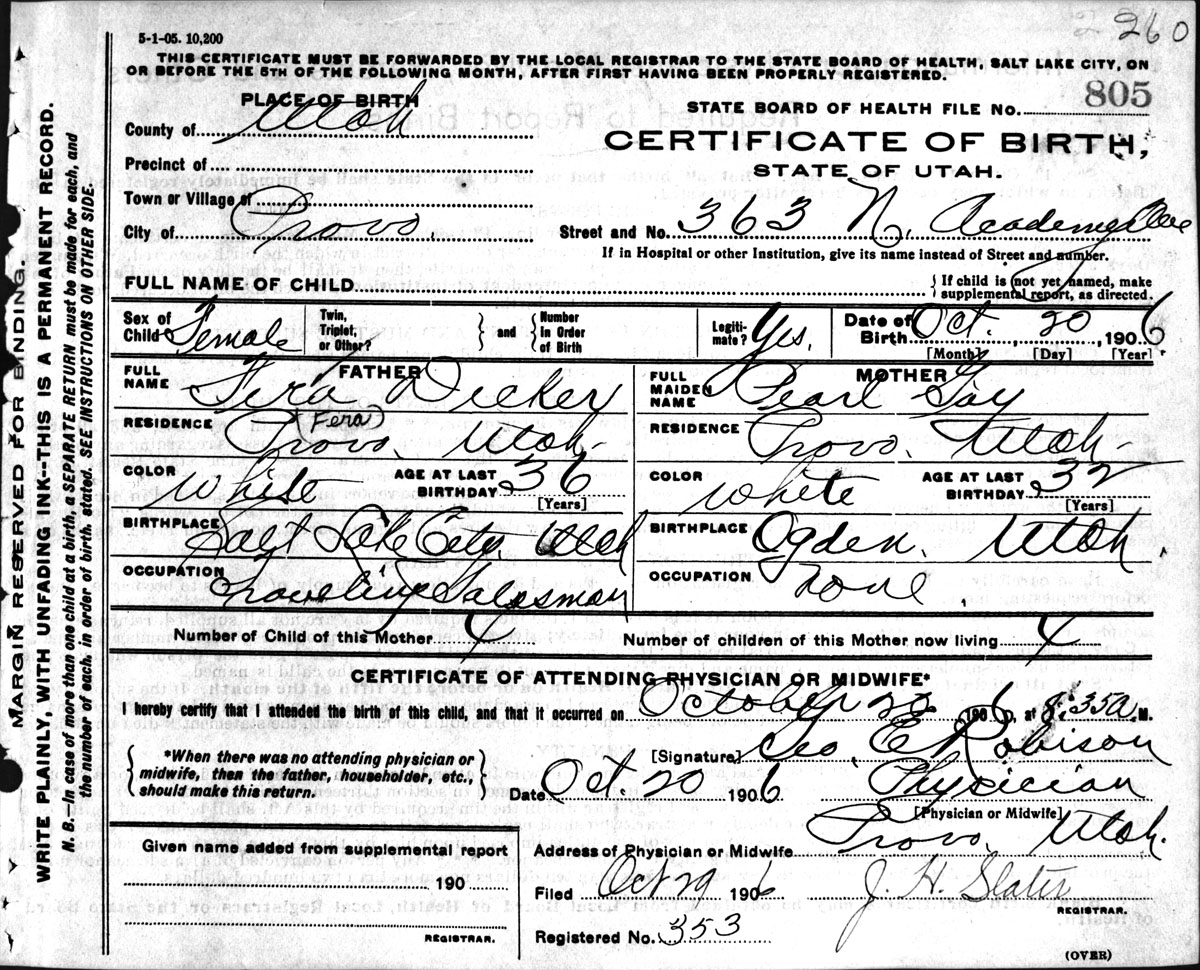 260
5-1-05. 10,200
THIS CERTIFICATE MUST BE FORWARDED BY THE LOCAL REGISTRAR TO THE STATE BOARD OF HEALTH, SALT LAKE CITY, ON
OR BEFORE THE 5TH OF THE FOLLOWING MONTH, AFTER FIRST HAVING BEEN PROPERLY REGISTERED.
PLACE OF BIRTH
STATE BOARD OF HEALTH FILE No. 805
County of Utah
CERTIFICATE OF BIRTH,
STATE OF UTAH.
Precinct of
Town or Village of
City of Provo. Street and No. 363 N. Academy Ave
If in Hospital or other Institution, give its name instead of Street and number.
FULL NAME OF CHILD } If child is not yet named, make supplemental report, as directed.
Sex of Child Female Twin, Triplet, or Other? } and { Number in Order of Birth Legiti-mate? Yes. Date of Birth Oct. 20, 1906
[Month] [Day] [Year]
FATHER MOTHER
FULL NAME Fera Decker FULL MAIDEN NAME Pearl Gay
Fera
RESIDENCE Provo, Utah. RESIDENCE Provo. Utah
COLOR White AGE AT LAST BIRTHDAY 36 [Years] COLOR White AGE AT LAST BIRTHDAY 32 [Years]
BIRTHPLACE Salt Lake City, Utah BIRTHPLACE Ogden, Utah
OCCUPATION Traveling Salesman OCCUPATION none.
Number of Child of this Mother 4 Number of children of this Mother now living 4
CERTIFICATE OF ATTENDING PHYSICIAN OR MIDWIFE*
I hereby certify that I attended the birth of this child, and that it occurred on October 20 1906, at 8:35 a. M.
[Signature] Geo. E Robison
{ *When there was no attending physician or
midwife, then the father, householder, etc.,
should make this return. }
Date Oct. 20 1906 Physician
[Physician or Midwife]
Address of Physician or Midwife Provo, Utah.
Given name added from supplemental report
190
REGISTRAR.
Filed Oct 29 1906 J. H. Slater
REGISTRAR.
Registered No. 353
(OVER)
MARGIN RESERVED FOR BINDING.
WRITE PLAINLY, WITH UNFADING INK--THIS IS A PERMANENT RECORD.
N. B.—In case of more than one child at a birth, a SEPARATE RETURN must be made for each, and
the number of each, in order of birth, stated. SEE INSTRUCTIONS ON OTHER SIDE.